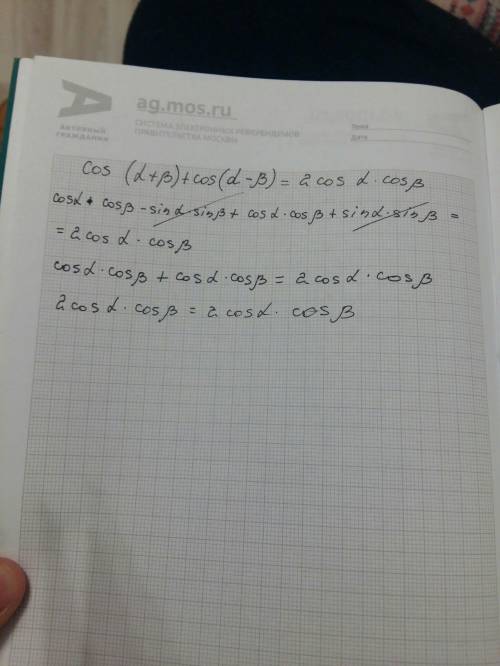 ag.mos.ru
АКТИВНЫЙ
ГРАЖДАНИН
СИСТЕМА ЭЛЕКТРОННЫХ РЕФЕРЕНДУМОВ
ПРАВИТЕЛЬСТВА МОСКВЫ
Тема
Дата
cos (α+β)+cos(α-β)= 2cos α·cosβ
cosα · cosβ - sinα·sinβ + cosα·cosβ + sinα·sinβ =
= 2cos α · cosβ
cosα·cosβ + cosα·cosβ = 2cosα·cosβ
2cosα·cosβ = 2cosα·cosβ